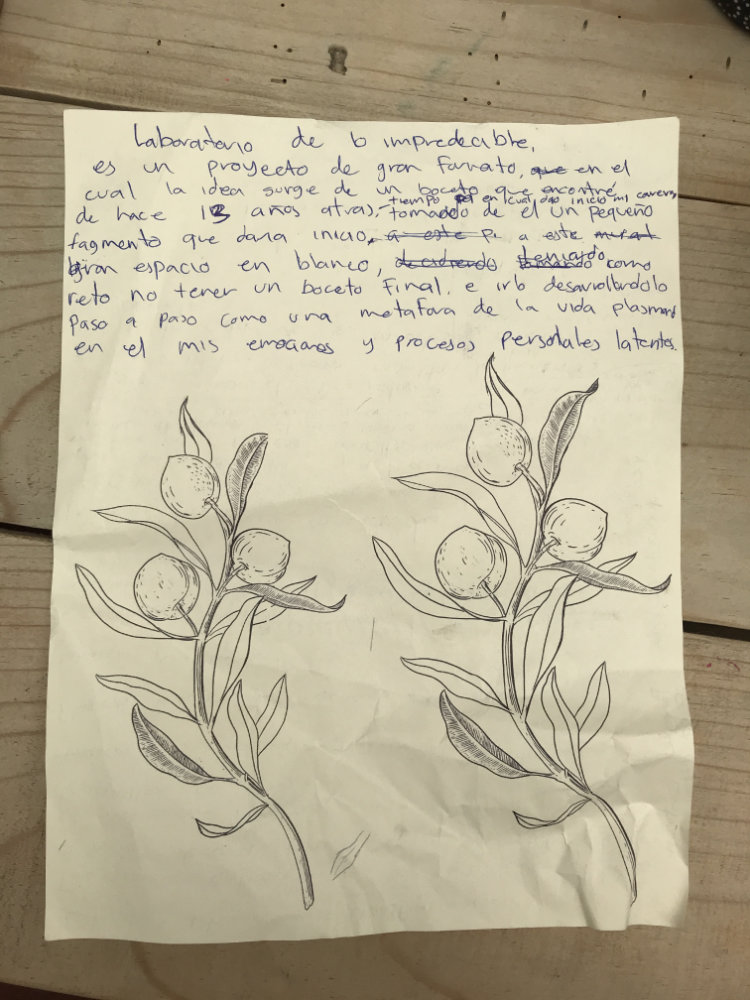 Laboratorio de lo impredecible,
es un proyecto de gran formato, que en el
cual la idea surge de un boceto que encontré,
tiempo en cual dio inicio mi carrera,
de hace 13 años atras, tomando de él un pequeño
fagmento que daria inicio, a este a este mural
gran espacio en blanco, teniendo como
reto no tener un boceto final, e irlo desarrollandolo
paso a paso como una metafora de la vida plasmand
en el mis emociones y procesos personales latentes.